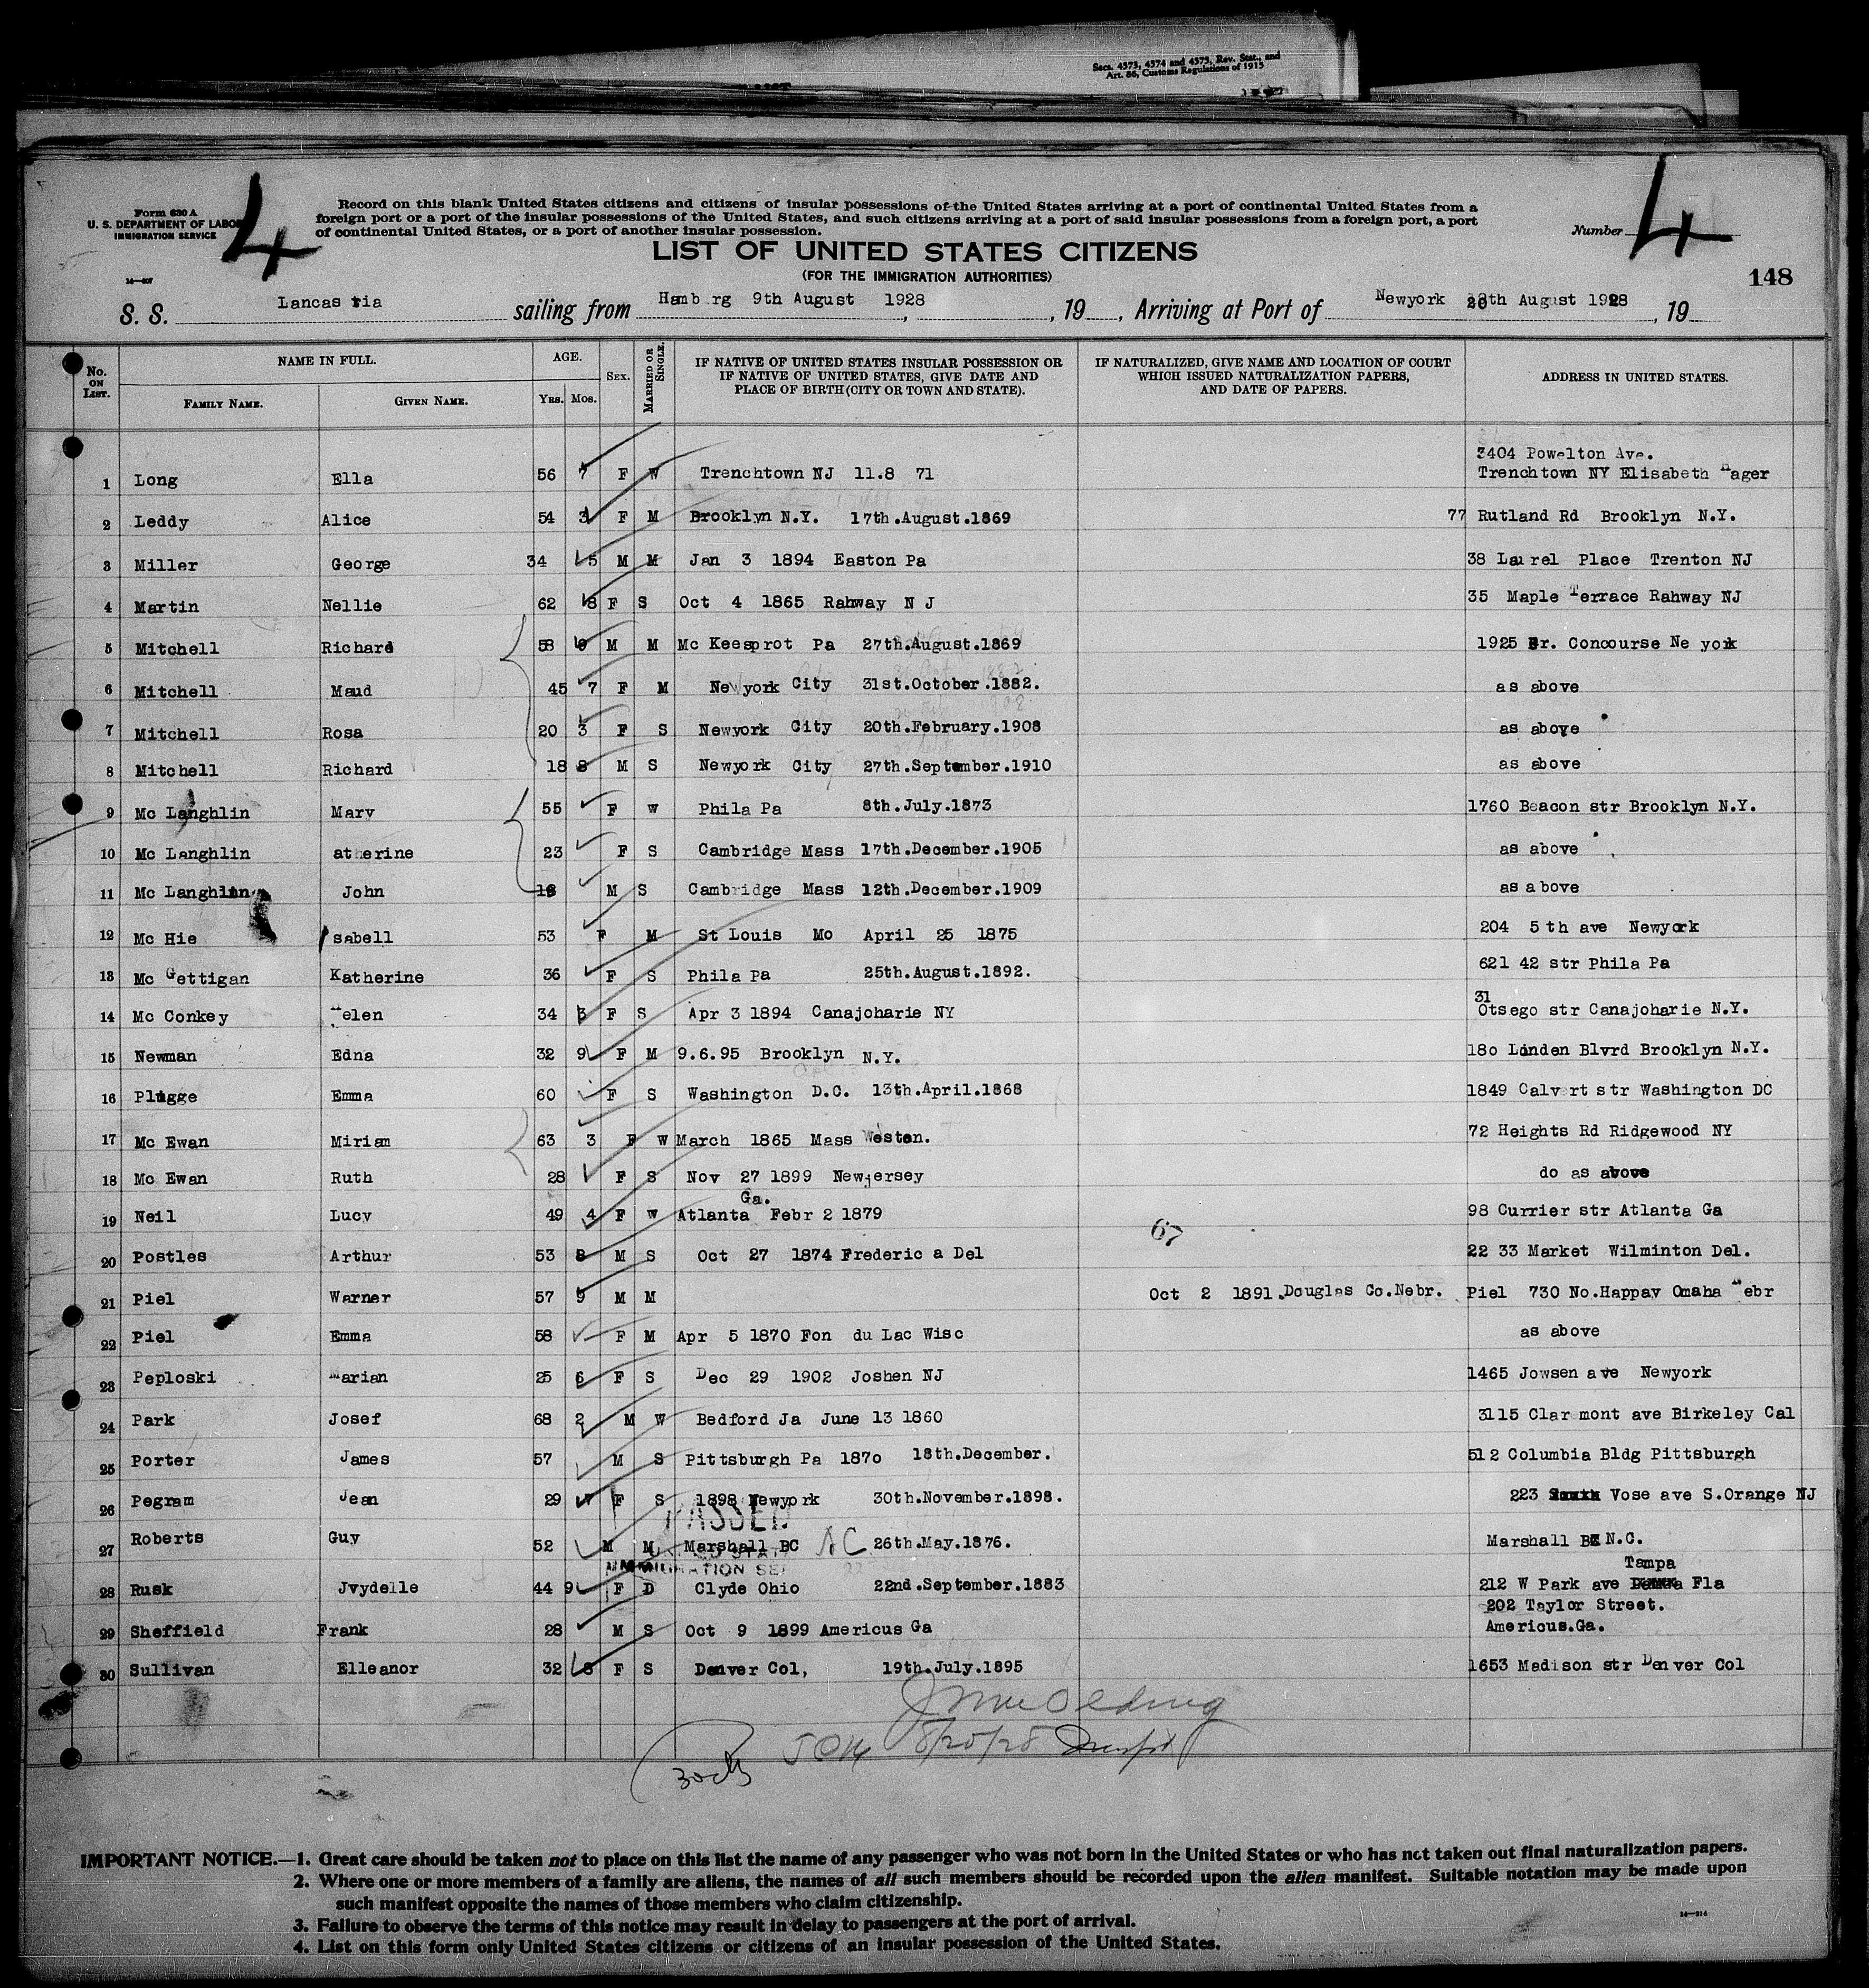 Secs. 4573, 4574 and 4575, Rev. Stat., and
Art. 86, Customs Regulations of 1915
Form 630 A
U. S. DEPARTMENT OF LABOR
IMMIGRATION SERVICE
4
Record on this blank United States citizens and citizens of insular possessions of the United States arriving at a port of continental United States from a
foreign port or a port of the insular possessions of the United States, and such citizens arriving at a port of said insular possessions from a foreign port, a port
of continental United States, or a port of another insular possession.
Number 4
LIST OF UNITED STATES CITIZENS
(FOR THE IMMIGRATION AUTHORITIES)
148
S. S. Lancastria sailing from Hamb rg 9th August 1928, , 19 , Arriving at Port of Newyork 20th August 1928, 19
No. ON LIST. NAME IN FULL. FAMILY NAME. GIVEN NAME. AGE. Yrs. Mos. SEX. MARRIED OR SINGLE. IF NATIVE OF UNITED STATES INSULAR POSSESSION OR IF NATIVE OF UNITED STATES, GIVE DATE AND PLACE OF BIRTH (CITY OR TOWN AND STATE). IF NATURALIZED, GIVE NAME AND LOCATION OF COURT WHICH ISSUED NATURALIZATION PAPERS, AND DATE OF PAPERS. ADDRESS IN UNITED STATES.
3404 Powelton Ave.
1 Long Ella 56 7 F W Trenchtown NJ 11.8 71 Trenchtown NY Elisabeth Hager
2 Leddy Alice 54 3 F M Brooklyn N.Y. 17th.August.1869 77 Rutland Rd Brooklyn N.Y.
3 Miller George 34 5 M M Jan 3 1894 Easton Pa 38 Laurel Place Trenton NJ
4 Martin Nellie 62 8 F S Oct 4 1865 Rahway N J 35 Maple Terrace Rahway NJ
5 Mitchell Richard 58 9 M M Mc Keesprot Pa 27th.August.1869 1925 Gr. Concourse Ne york
6 Mitchell Maud 45 7 F M Newyork City 31st.October.1882. as above
7 Mitchell Rosa 20 3 F S Newyork City 20th.February.1908 as above
8 Mitchell Richard 18 8 M S Newyork City 27th.September.1910 as above
9 Mc Langhlin Mary 55 F W Phila Pa 8th.July.1873 1760 Beacon str Brooklyn N.Y.
10 Mc Langhlin atherine 23 F S Cambridge Mass 17th.December.1905 as above
11 Mc Langhlin John 18 M S Cambridge Mass 12th.December.1909 as above
12 Mc Hie Isabell 53 F M St Louis Mo April 25 1875 204 5th ave Newyork
13 Mc Gettigan Katherine 36 F S Phila Pa 25th.August.1892. 621 42 str Phila Pa
14 Mc Conkey Helen 34 3 F S Apr 3 1894 Canajoharie NY 31 Otsego str Canajoharie N.Y.
15 Newman Edna 32 9 F M 9.6.95 Brooklyn N.Y. 180 Linden Blvrd Brooklyn N.Y.
16 Plugge Emma 60 F S Washington D.C. 13th.April.1868 1849 Calvert str Washington DC
17 Mc Ewan Miriam 63 3 F W March 1865 Mass Weston. 72 Heights Rd Ridgewood NY
18 Mc Ewan Ruth 28 F S Nov 27 1899 Newjersey do as above
19 Neil Lucy 49 4 F W Atlanta Ga. Febr 2 1879 98 Currier str Atlanta Ga
67
20 Postles Arthur 53 8 M S Oct 27 1874 Frederica Del 22 33 Market Wilminton Del.
21 Piel Warner 57 9 M M Oct 2 1891.Douglas Co.Nebr. Piel 730 No.Happay Omaha Nebr
22 Piel Emma 58 F M Apr 5 1870 Fon du Lac Wisc as above
23 Peploski Marian 25 6 F S Dec 29 1902 Joshen NJ 1465 Jowsen ave Newyork
24 Park Josef 68 2 M W Bedford Ja June 13 1860 3115 Clar mont ave Birkeley Cal
25 Porter James 57 M S Pittsburgh Pa 1870 18th.December. 512 Columbia Bldg Pittsburgh
26 Pegram Jean 29 F S 1898 Newyork 30th.November.1898. 223 Vose ave S.Orange NJ
PASSED
27 Roberts Guy 52 M M Marshall BC NC 26th.May.1876. Marshall N.C.
28 Rusk Jvydelle 44 9 F D Clyde Ohio 22nd.September.1883 212 W Park ave Tampa Fla
202 Taylor Street.
29 Sheffield Frank 28 M S Oct 9 1899 Americus Ga Americus.Ga.
30 Sullivan Elleanor 32 8 F S Denver Col, 19th.July.1895 1653 Madison str Denver Col
8/20/28
IMPORTANT NOTICE.—1. Great care should be taken not to place on this list the name of any passenger who was not born in the United States or who has not taken out final naturalization papers.
2. Where one or more members of a family are aliens, the names of all such members should be recorded upon the alien manifest. Suitable notation may be made upon
such manifest opposite the names of those members who claim citizenship.
3. Failure to observe the terms of this notice may result in delay to passengers at the port of arrival.
4. List on this form only United States citizens or citizens of an insular possession of the United States.